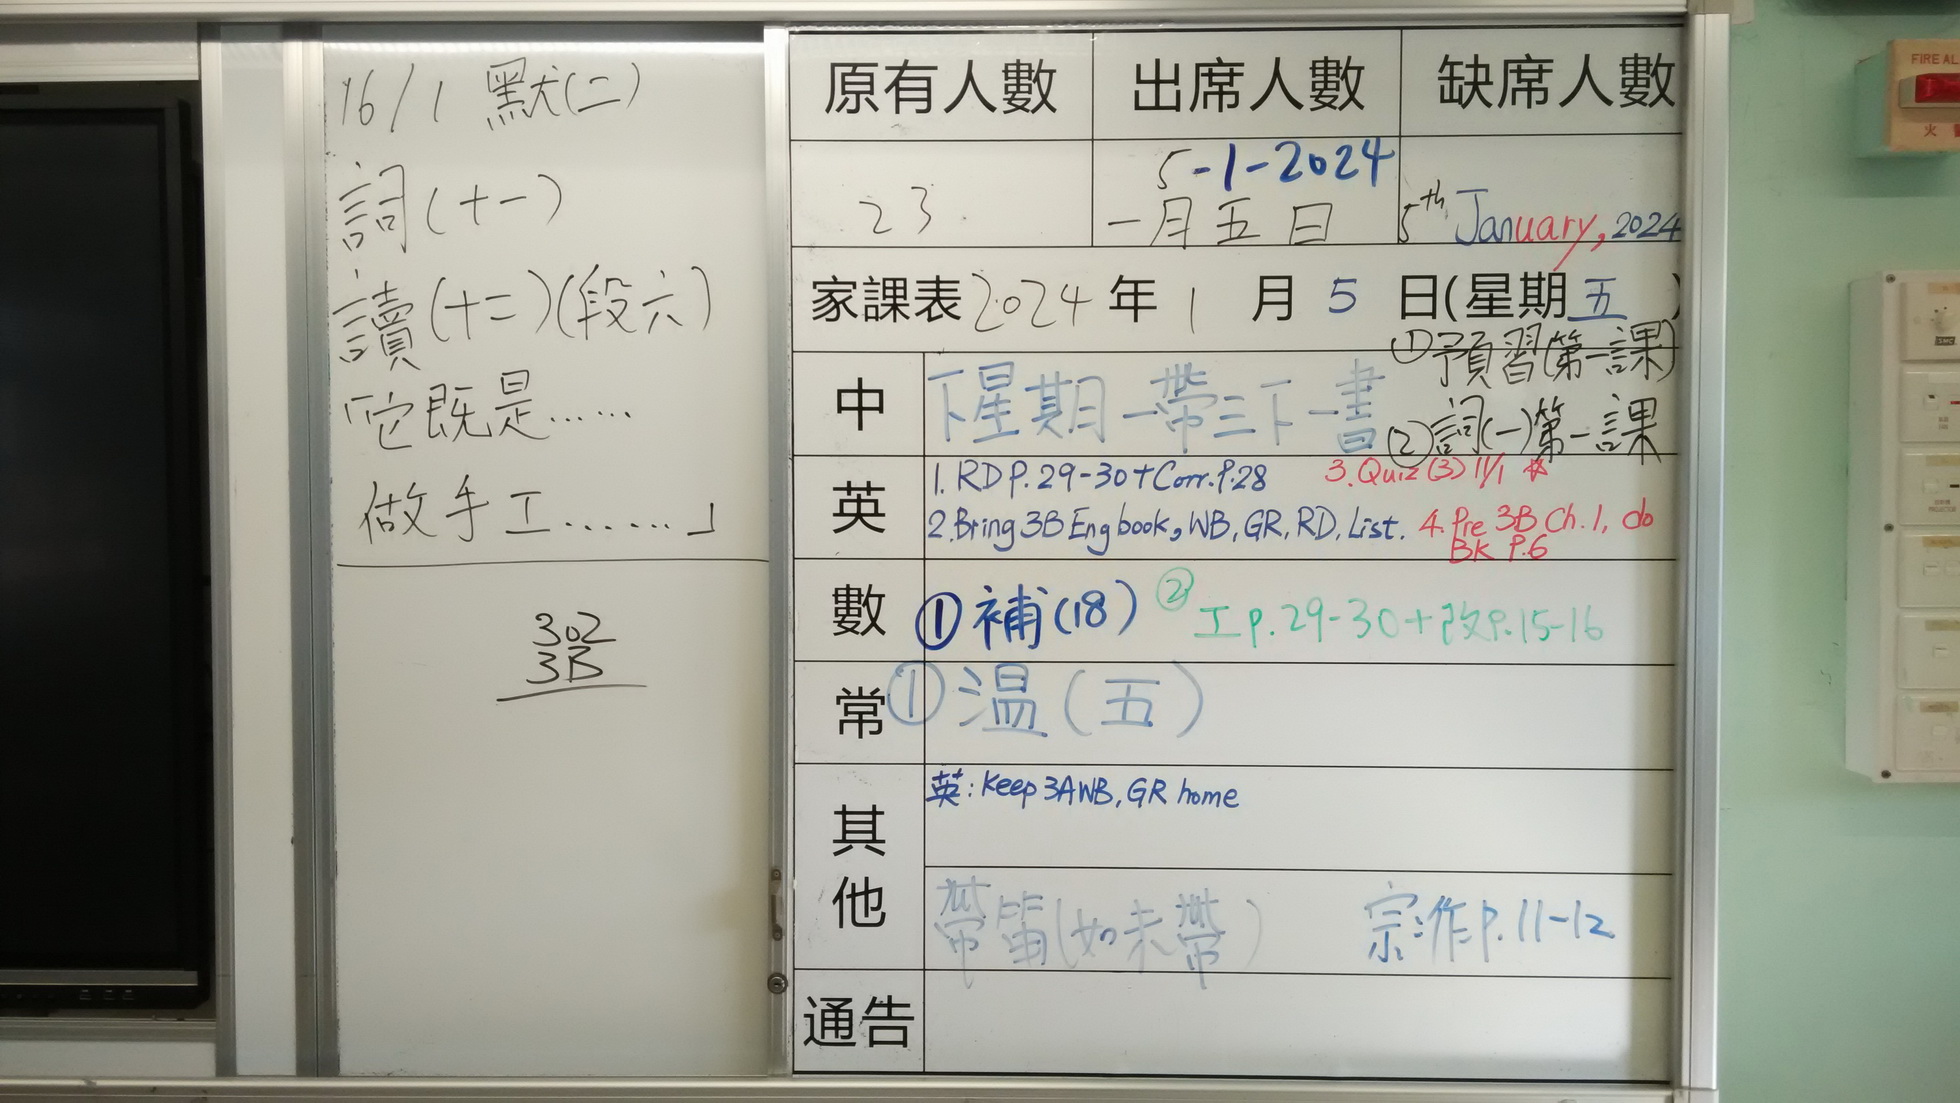 16/1 默(二)
詞(十一)
讀(十二)(段六)
「它既是……
做手工……」
302
3B
原有人數 出席人數 缺席人數
23
5-1-2024
一月五日
5th January, 2024
家課表2024年1月5日(星期五)
中 下星期一帶三下一書
①預習(第一課)
②詞(一)第一課
英 1. RD P.29-30+Corr.P.28 3.Quiz(3) 11/1 *
2.Bring 3B Eng book, WB, GR, RD, List. 4. Pre 3B Ch.1, do
BK P.6
數 ①補(18) ②工p.29-30+改p.15-16
常 ①溫(五)
其他 英: Keep 3A WB, GR home
帶笛(如未帶) 宗:作p.11-12
通告
FIRE AL
火